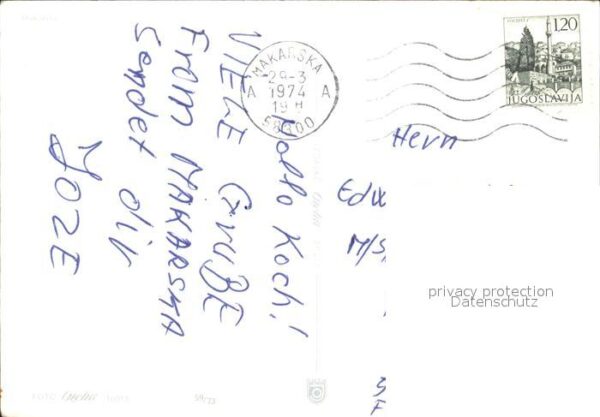 Hallo Koch!
VIELE GRUBE
FROM MAKARSKA
Sendet dir
JOZE
MAKARSKA
29-3
1974
19 H
A A
58300
1.20
JUGOSLAVIJA
Herrn
Edu
M/S
privacy protection
Datenschutz
FOTO
59/73